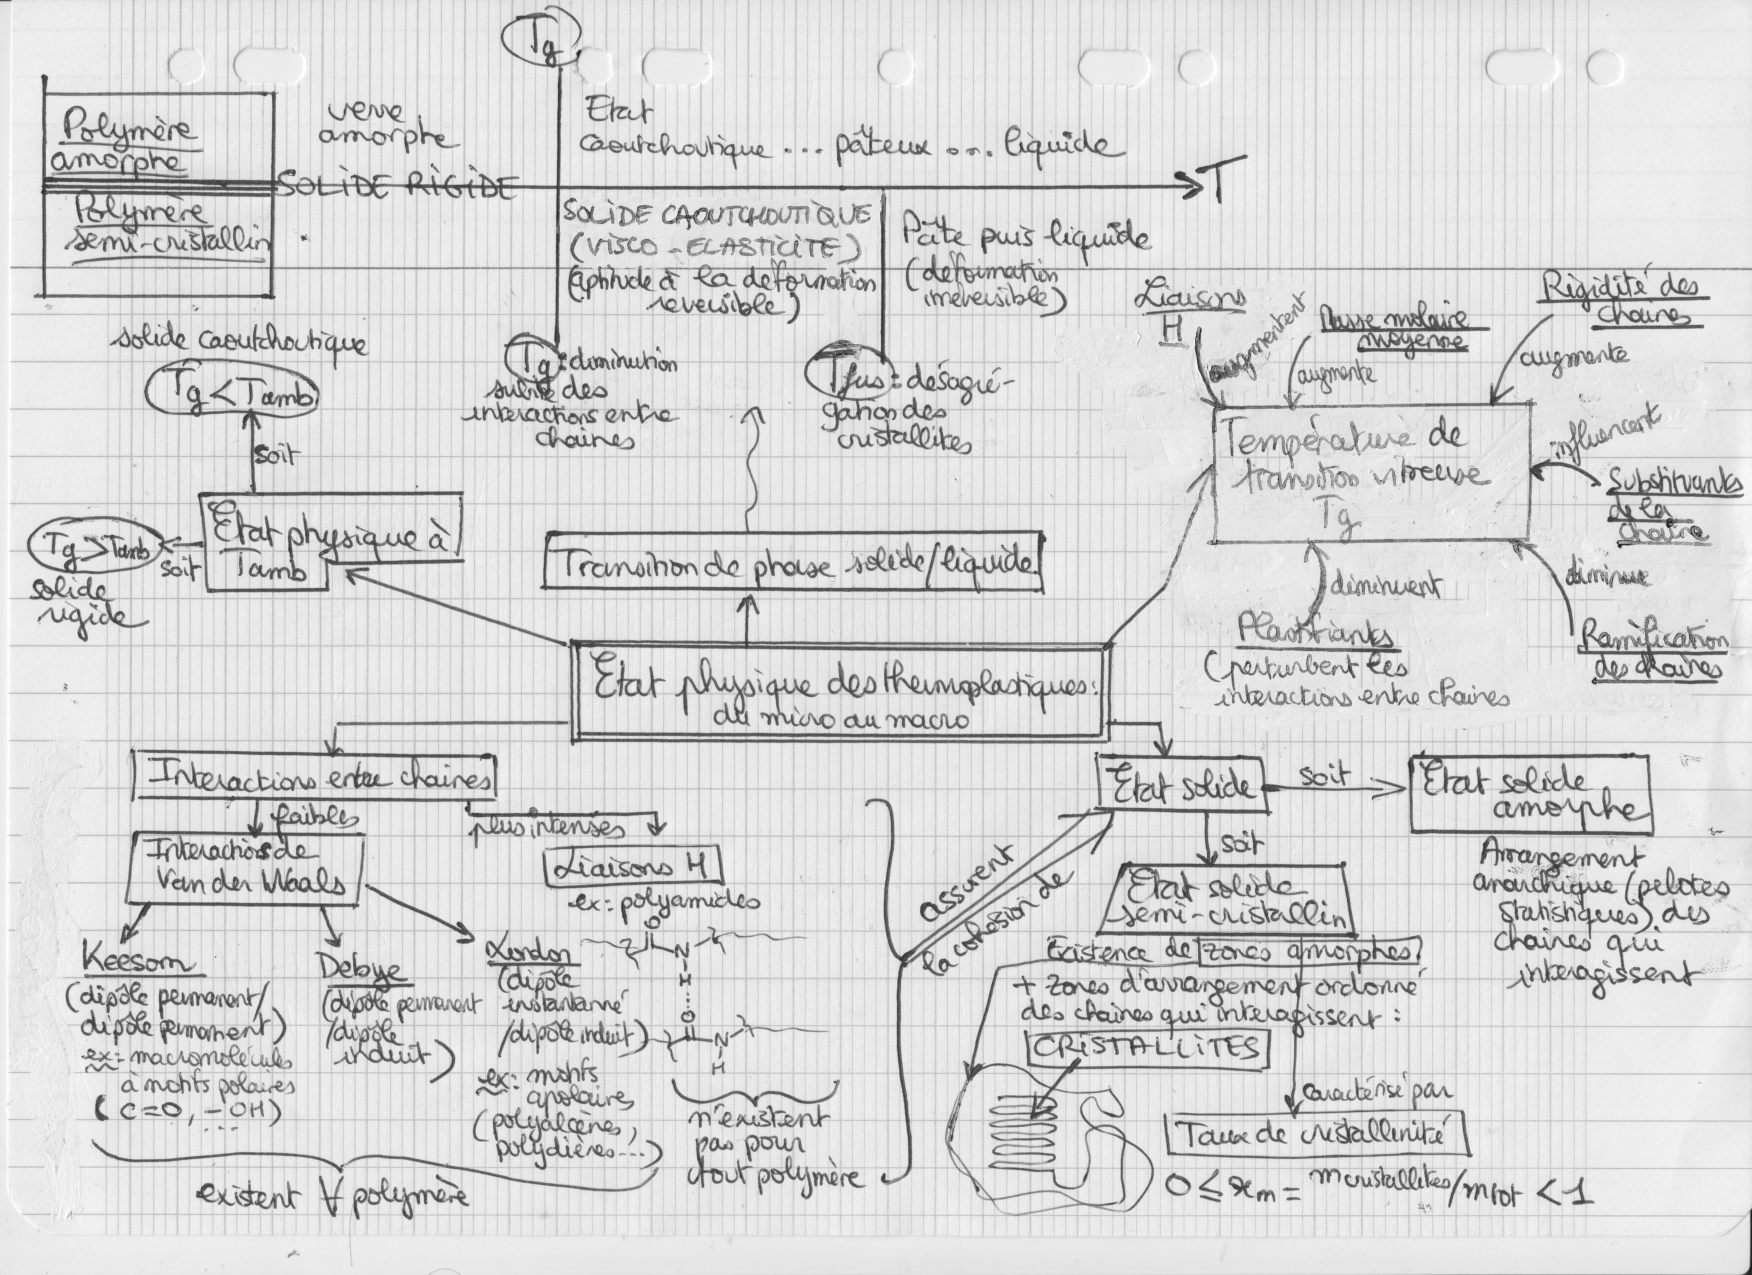 Tg
Polymère
amorphe
verre
amorphe
Etat
caoutchoutique ... pâteux ... liquide
SOLIDE RIGIDE
T
Polymère
semi-cristallin
SOLIDE CAOUTCHOUTIQUE
(VISCO-ELASTICITE)
(aptitude à la déformation
réversible)
Pâte puis liquide
(déformation
irréversible)
Tg : diminution
subite des
interactions entre
chaines
Tfus : désagré-
gation des
cristallites
solide caoutchoutique
Tg < Tamb
soit
Etat physique à
Tamb
soit
Tg > Tamb
solide
rigide
Transition de phase solide/liquide
Liaisons
H
augmentent
Masse molaire
moyenne
augmente
Rigidité des
chaines
augmente
Température de
transition vitreuse
Tg
influencent
Substituants
de la
chaine
diminue
Ramification
des chaines
diminuent
Plastifiants
(perturbent les
interactions entre chaines
Etat physique des thermoplastiques :
du micro au macro
Interactions entre chaines
faibles
plus intenses
Interactions de
Van der Waals
Liaisons H
ex: polyamides
Keesom
(dipôle permanent/
dipôle permanent)
ex: macromolécules
à motifs polaires
(C=O, -OH)
...
Debye
(dipôle permanent
/dipôle
induit)
London
(dipôle
instantanné
/dipôle induit)
ex: motifs
apolaires
(polyalcènes,
polydiènes...)
O
N
H
O
N
H
existent ∀ polymère
n'existent
pas pour
tout polymère
assurent
la cohésion de
Etat solide
soit
Etat solide
amorphe
Arrangement
anarchique (pelotes
statistiques) des
chaines qui
interagissent
soit
Etat solide
semi-cristallin
Existence de zones amorphes
+ zones d'arrangement ordonné
des chaines qui interagissent :
CRISTALLITES
caractérisé par
Taux de cristallinité
0 ≤ xm = mcristallites/mtot < 1